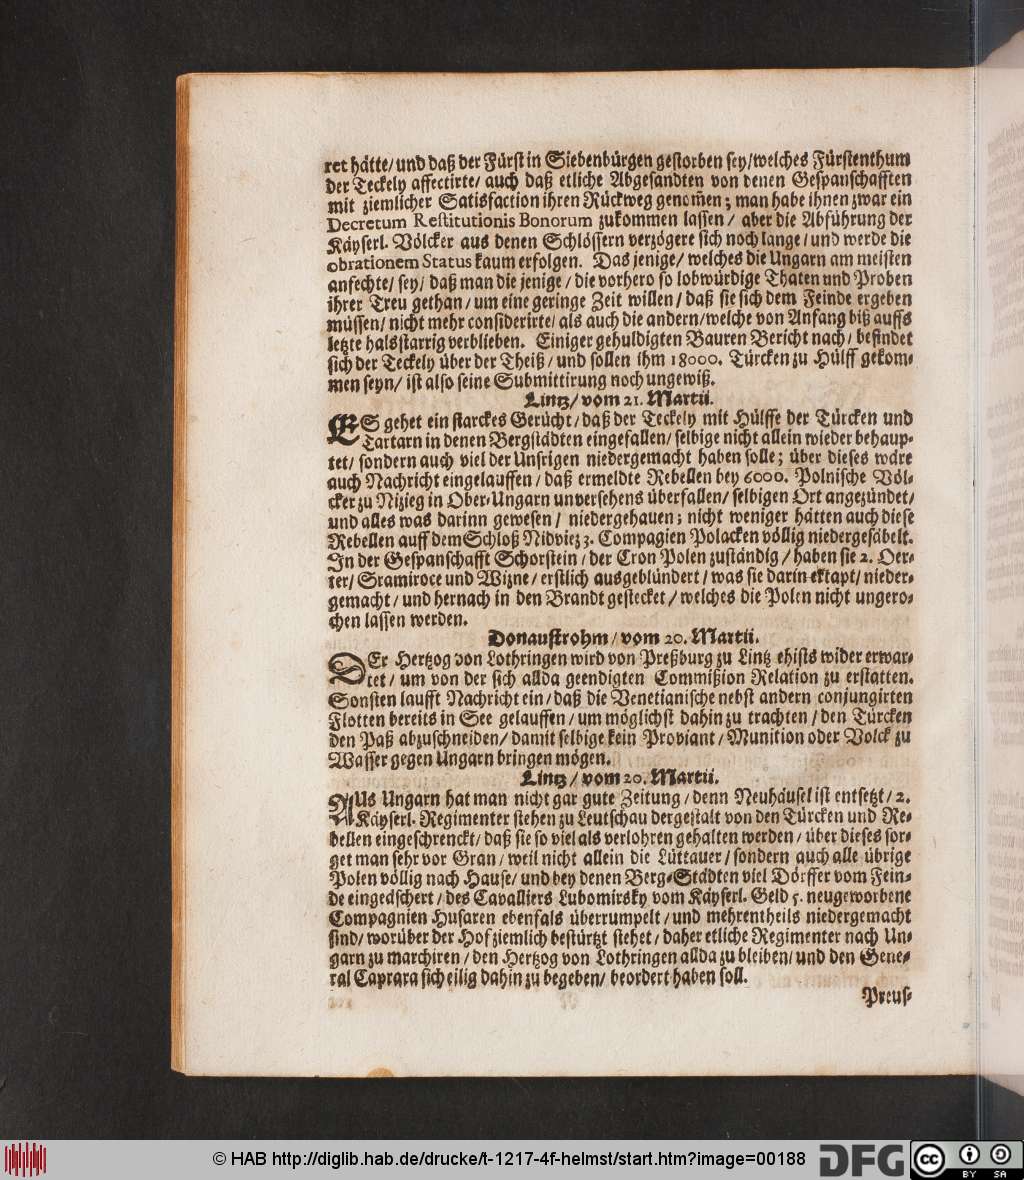 ret hätte/ und daß der Fürst in Siebenbürgen gestorben sey/ welches Fürstenthum
der Teckely affectirte/ auch daß etliche Abgesandten von denen Gespanschafften
mit ziemlicher Satisfaction ihren Rückweg genom̃en; man habe ihnen zwar ein
Decretum Restitutionis Bonorum zukommen lassen/ aber die Abführung der
Käyserl. Völcker aus denen Schlössern verzögere sich noch lange/ und werde die
obrationem Status kaum erfolgen. Das jenige/ welches die Ungarn am meisten
anfechte/ sey/ daß man die jenige/ die vorhero so lobwürdige Thaten und Proben
ihrer Treu gethan/ um eine geringe Zeit willen/ daß sie sich dem Feinde ergeben
müssen/ nicht mehr considerirte/ als auch die andern/ welche von Anfang biß auffs
letzte halsstarrig verblieben. Einiger gehuldigten Bauren Bericht nach/ befindet
sich der Teckely über der Theiß/ und sollen ihm 18000. Türcken zu Hülff gekom-
men seyn/ ist also seine Submittirung noch ungewiß.
Lintz/ vom 21. Martii.
ES gehet ein starckes Gerücht/ daß der Teckely mit Hülffe der Türcken und
Tartarn in denen Bergstädten eingefallen/ selbige nicht allein wieder behaup-
tet/ sondern auch viel der Unsrigen niedergemacht haben solle; über dieses wäre
auch Nachricht eingelauffen/ daß ermeldte Rebellen bey 6000. Polnische Völ-
cker zu Nizieg in Ober-Ungarn unversehens überfallen/ selbigen Ort angezündet/
und alles was darinn gewesen/ niedergehauen; nicht weniger hätten auch diese
Rebellen auff dem Schloß Nidviez 3. Compagien Polacken völlig niedergesäbelt.
In der Gespanschafft Schorstein/ der Cron Polen zuständig/ haben sie 2. Oer-
ter/ Sramiroce und Wizne/ erstlich ausgeblündert/ was sie darin ektapt/ nieder-
gemacht/ und hernach in den Brandt gestecket/ welches die Polen nicht ungero-
chen lassen werden.
Donaustrohm/ vom 20. Martii.
DEr Hertzog von Lothringen wird von Preßburg zu Lintz ehists wider erwar-
tet/ um von der sich allda geendigten Commißion Relation zu erstatten.
Sonsten laufft Nachricht ein/ daß die Venetianische nebst andern conjungirten
Flotten bereits in See gelauffen/ um möglichst dahin zu trachten/ den Türcken
den Paß abzuschneiden/ damit selbige kein Proviant/ Munition oder Volck zu
Wasser gegen Ungarn bringen mögen.
Lintz/ vom 20. Martii.
AUs Ungarn hat man nicht gar gute Zeitung/ denn Neuhäusel ist entsetzt/ 2.
Käyserl. Regimenter stehen zu Leutschau dergestalt von den Türcken und Re-
bellen eingeschrenckt/ daß sie so viel als verlohren gehalten werden/ über dieses sor-
get man sehr vor Gran/ weil nicht allein die Lüttauer/ sondern auch alle übrige
Polen völlig nach Hause/ und bey denen Berg-Städten viel Dörffer vom Fein-
de eingeäschert/ des Cavalliers Lubomirsky vom Käyserl. Geld 5. neugeworbene
Compagnien Husaren ebenfals überrumpelt/ und mehrentheils niedergemacht
sind/ worüber der Hof ziemlich bestürtzt stehet/ daher etliche Regimenter nach Un-
garn zu marchiren/ den Hertzog von Lothringen allda zu bleiben/ und den Gene-
ral Caprara sich eilig dahin zu begeben/ beordert haben soll.
Preus-
© HAB http://diglib.hab.de/drucke/t-1217-4f-helmst/start.htm?image=00188
DFG
cc BY SA